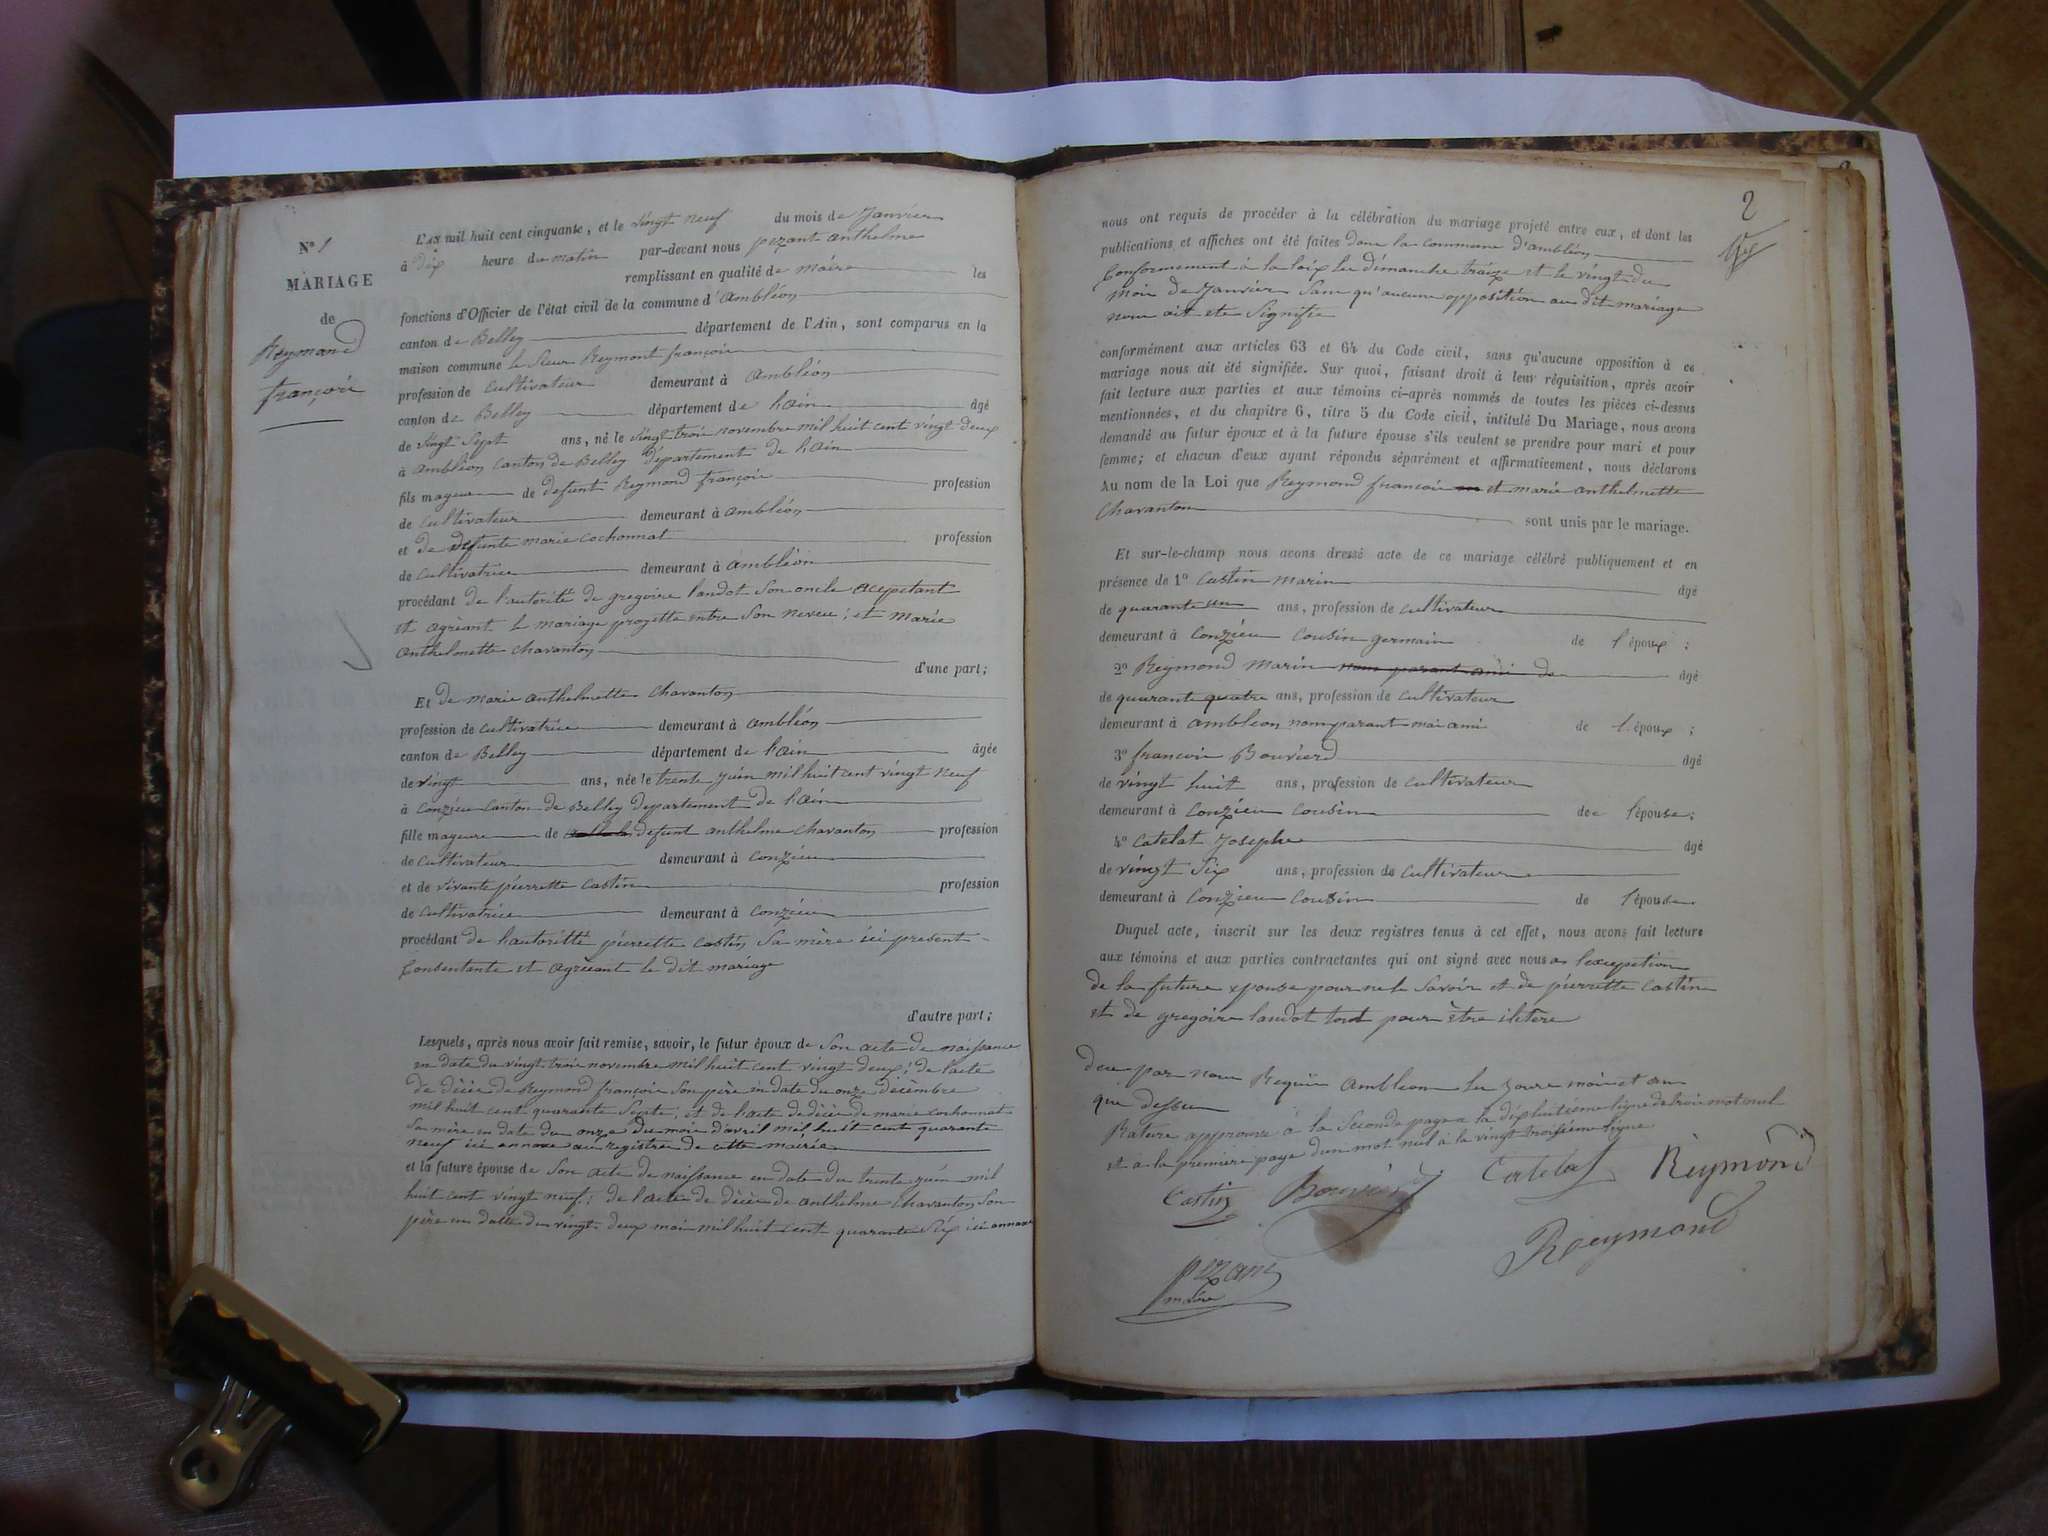 N° 1
MARIAGE
de
Reymond
françois
L'AN mil huit cent cinquante, et le vingt neuf du mois de Janvier
à dix heure du matin par-devant nous pezant anthelme
remplissant en qualité de maire les
fonctions d'Officier de l'état civil de la commune d'Ambléon
canton de Belley département de l'Ain, sont comparus en la
maison commune le sieur Reymont françois
profession de cultivateur demeurant à Ambléon
canton de Belley département de hain âgé
de vingt sept ans, né le vingt trois novembre mil huit cent vingt deux
à Ambléon canton de Belley département de hain
fils mageur de defunt Reymond françois profession
de cultivateur demeurant à ambléon
et de defunte marie cochonnat profession
de cultivatrice demeurant à ambléon
procédant de l'autorité de gregoire landot son oncle acceptant
et agréant le mariage projetté entre son neveu; et marie
anthelmette chavanton d'une part;
Et de marie anthelmette chavanton
profession de cultivatrice demeurant à ambléon
canton de Belley département de hain âgée
de vingt ans, née le trente juin mil huit cent vingt neuf
à conzieu canton de Belley departement de hain
fille mageure de defunt anthelme chavanton profession
de cultivateur demeurant à conzieu
et de vivante pierrette castin profession
de cultivatrice demeurant à conzieu
procédant de hautoritté pierrette castin sa mère ici present
Consentante et agréeant le dit mariage
d'autre part;
Lesquels, après nous avoir fait remise, savoir, le futur époux de son acte de naissance
en date du vingt trois novembre mil huit cent vingt deux; de l'acte
de décès de Reymond françois son père en date du onze décembre
mil huit cent quarante septe; et de l'acte de décès de marie cochonnat
sa mère en date du onze du mois d'avril mil huit cent quarante
neuf ici annexe au registre de cette mairie
et la future épouse de son acte de naissance en date du trente juin mil
huit cent vingt neuf; de l'acte de décès de anthelme chavanton son
père en datte du vingt deux mai mil huit cent quarante six ici annaxe
2
nous ont requis de procéder à la célébration du mariage projeté entre eux, et dont les
publications et affiches ont été faites dans la commune d'ambléon
Conformement à la loix les dimanche traize et le vingt du
mois de Janvier sans qu'aucune opposition au dit mariage
nous ait ete signifie
conformément aux articles 63 et 64 du Code civil, sans qu'aucune opposition à ce
mariage nous ait été signifiée. Sur quoi, faisant droit à leur réquisition, après avoir
fait lecture aux parties et aux témoins ci-après nommés de toutes les pièces ci-dessus
mentionnées, et du chapitre 6, titre 5 du Code civil, intitulé Du Mariage, nous avons
demandé au futur époux et à la future épouse s'ils veulent se prendre pour mari et pour
femme; et chacun d'eux ayant répondu séparément et affirmativement, nous déclarons
Au nom de la Loi que Reymond françois et marie anthelmette
chavanton sont unis par le mariage.
Et sur-le-champ nous avons dressé acte de ce mariage célébré publiquement et en
présence de 1° Castin marin âgé
de quarante un ans, profession de cultivateur
demeurant à Conzieu cousin germain de l'époux;
2° Reymond marin nom parant ami de âgé
de quarante quatre ans, profession de cultivateur
demeurant à ambleon nom parant mai ami de l'époux;
3° francois Bouvierd âgé
de vingt huit ans, profession de cultivateur
demeurant à Conzieu cousin de l'épouse;
4° Catelat Josephe âgé
de vingt six ans, profession de cultivateur
demeurant à Conzieu cousin de l'épouse.
Duquel acte, inscrit sur les deux registres tenus à cet effet, nous avons fait lecture
aux témoins et aux parties contractantes qui ont signé avec nous a lexcepetion
de la future xpouse pour ne le savoir et de pierrette castin
et de gregoire landot tout pour être ilitere
deu par nous Requis Ambleon les Jours mois et an
que dessu
Rature approuve à la seconde page a la dixhuitième ligne de trois mot nul
et a la premiere page dun mot nul à la vingt troisième ligne
Castin Bouvierd Catelat Reymond
Reymond
pezant
maire